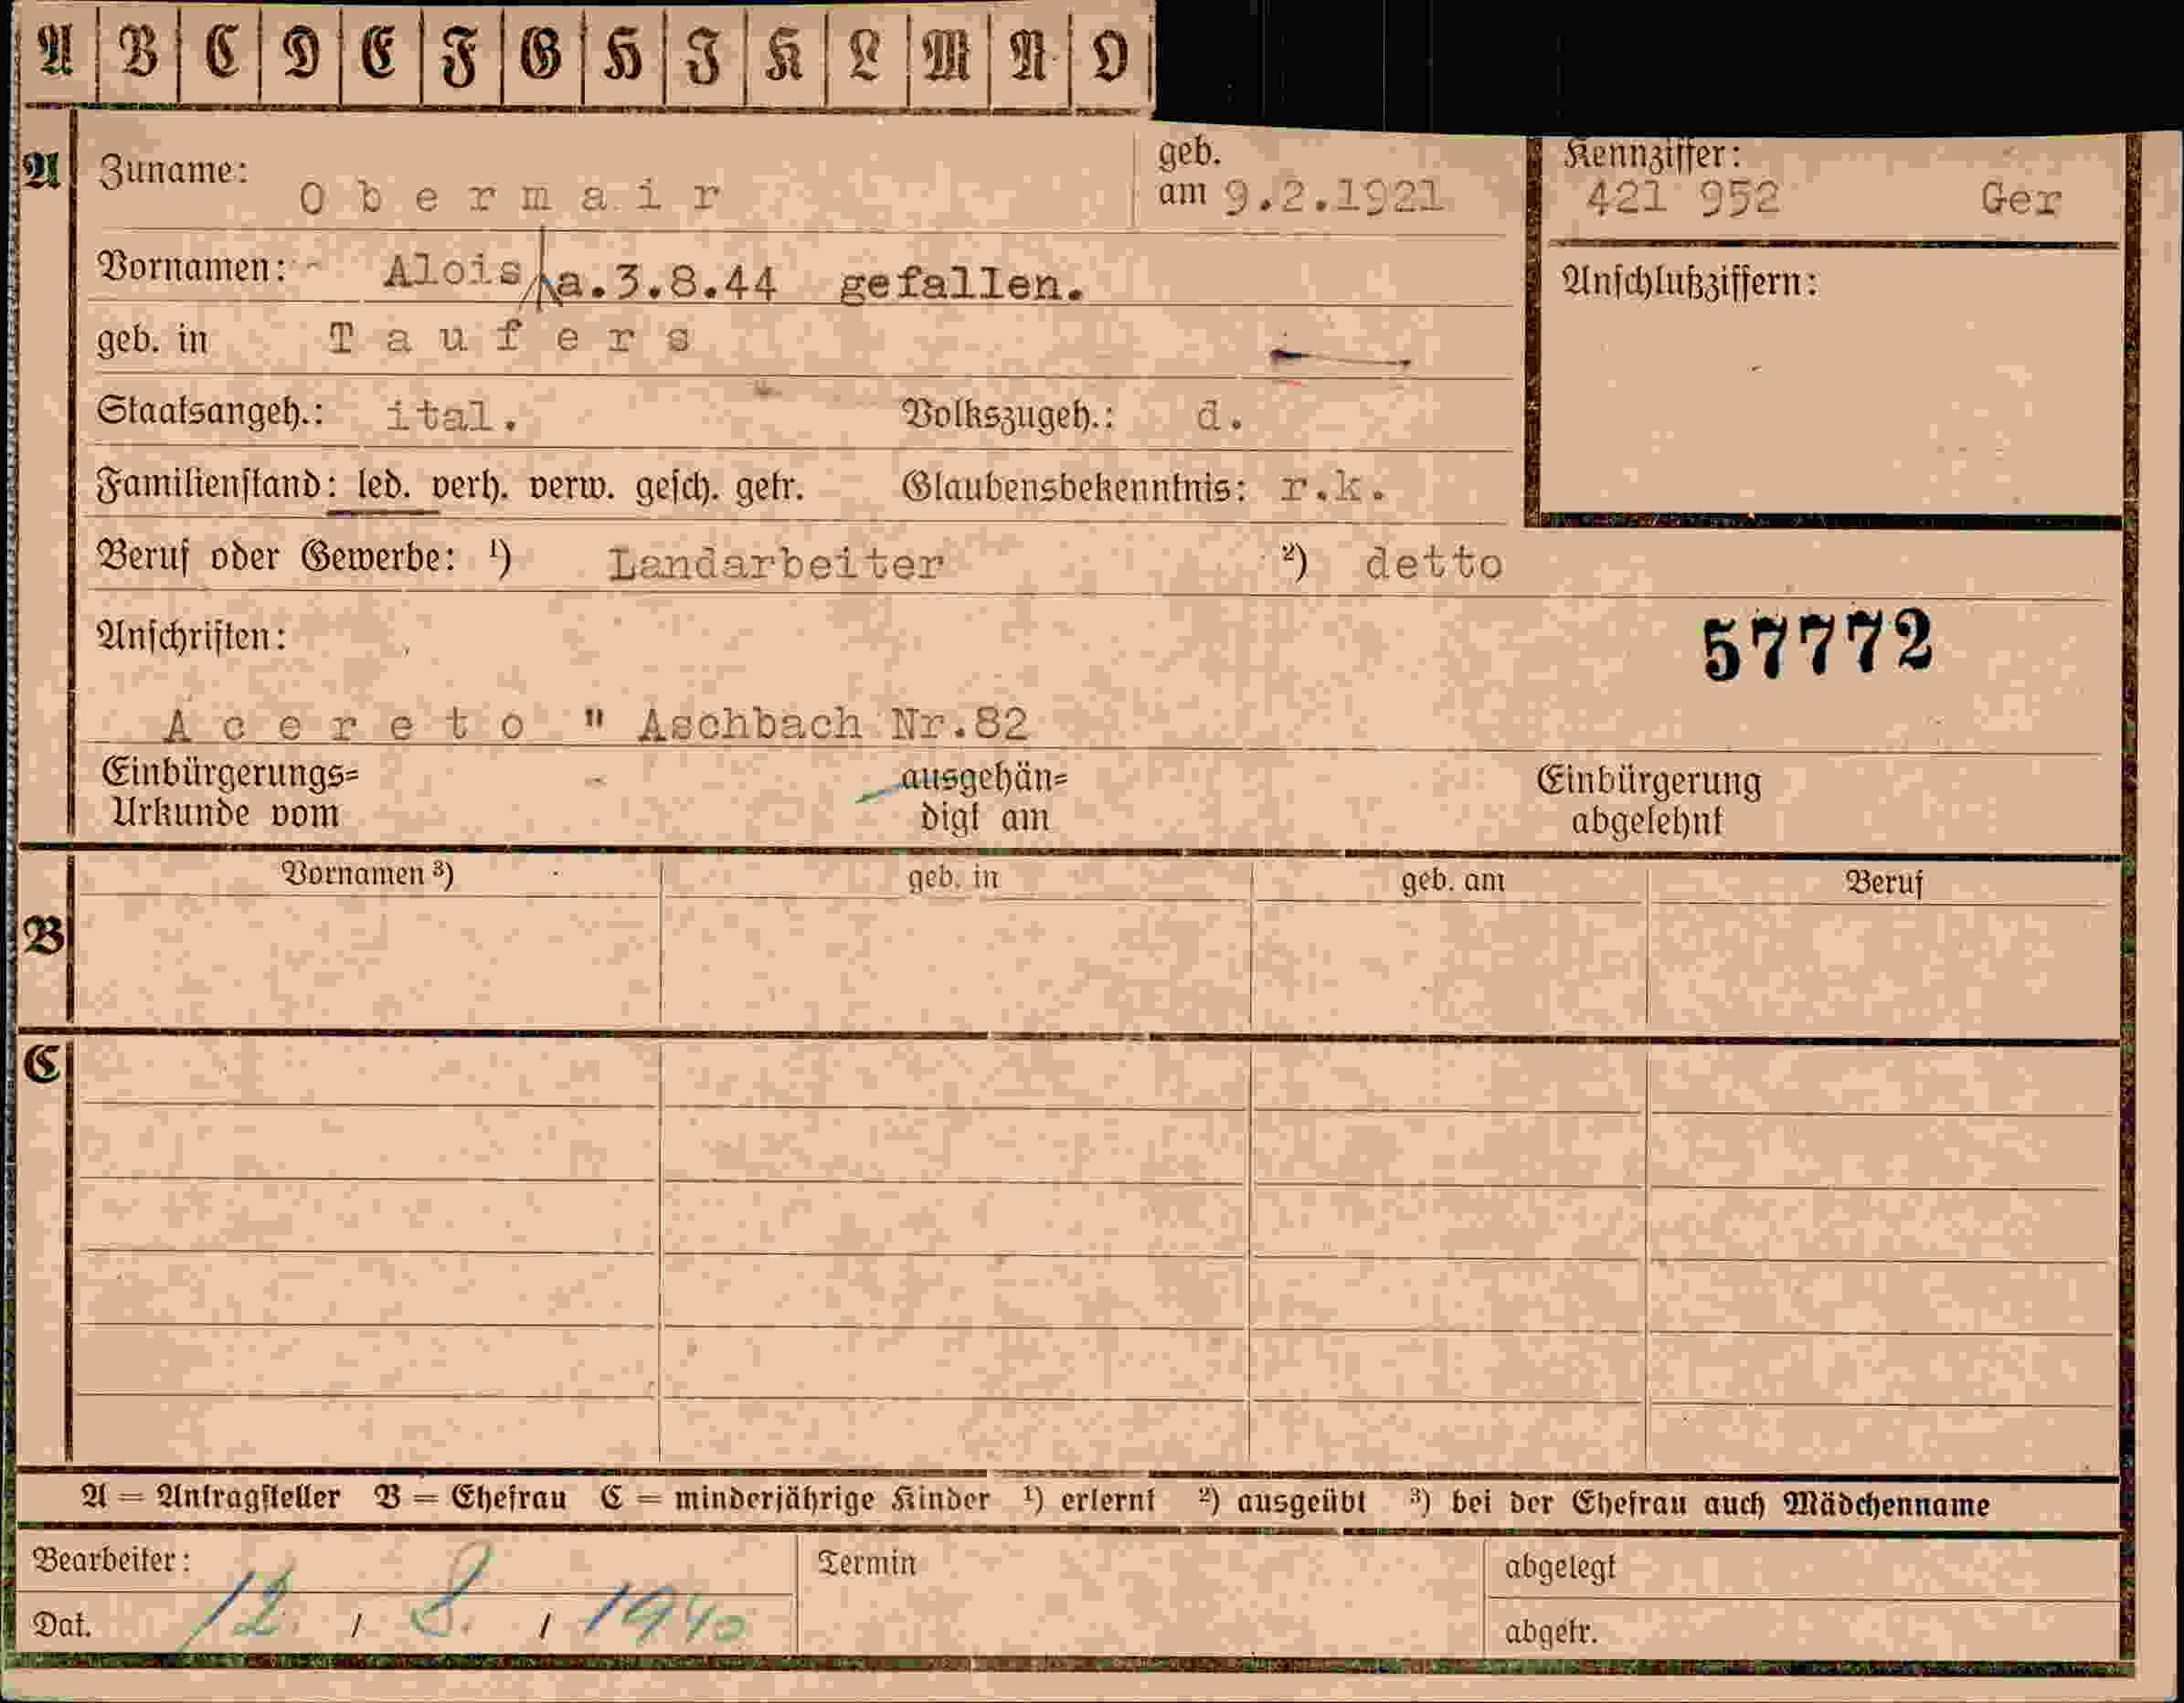 A B C D E F G H I K L M N O
A Zuname: Obermair geb. am 9.2.1921 Kennziffer: 421 952 Ger
Vornamen: Alois a.3.8.44 gefallen. Anschlußziffern:
geb. in Taufers
Staatsangeh.: ital. Volkszugeh.: d.
Familienstand: led. verh. verw. gesch. getr. Glaubensbekenntnis: r.k.
Beruf oder Gewerbe: ¹) Landarbeiter ²) detto
Anschriften: 57772
Acereto " Aschbach Nr.82
Einbürgerungs= ausgehän= Einbürgerung
Urkunde vom digt am abgelehnt
Vornamen ³) geb. in geb. am Beruf
B
C
A = Antragsteller B = Ehefrau C = minderjährige Kinder ¹) erlernt ²) ausgeübt ³) bei der Ehefrau auch Mädchenname
Bearbeiter: Termin abgelegt
Dat. 12. / 8. / 1940 abgetr.